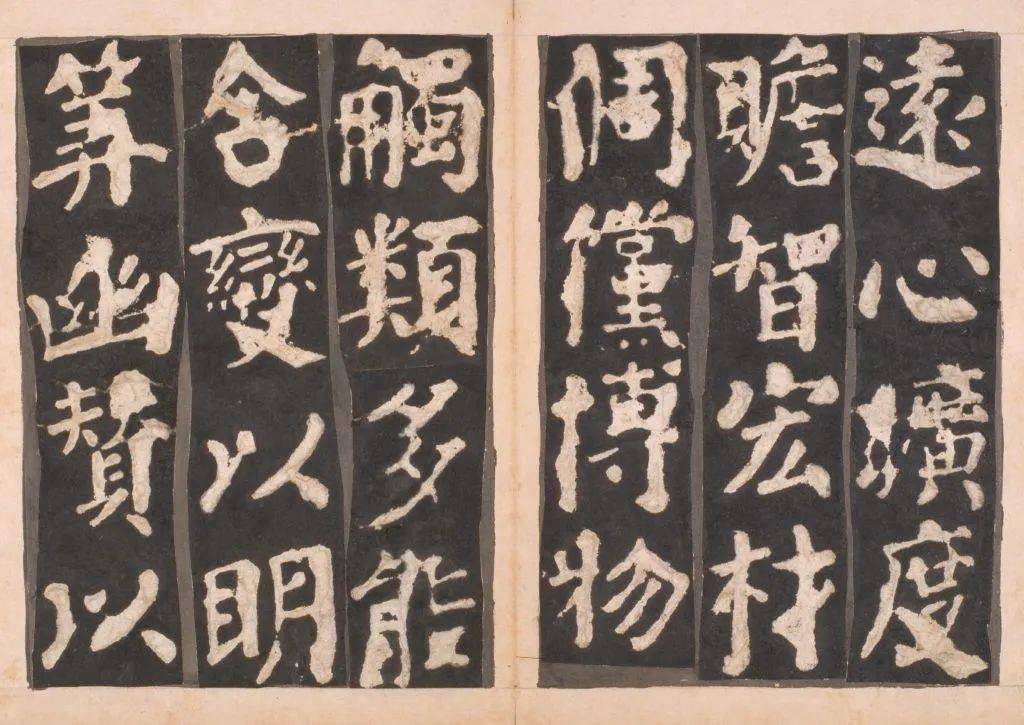 遠心曠度
贍智宏材
倜儻博物
觸類多能
合變以明
筭幽贊以